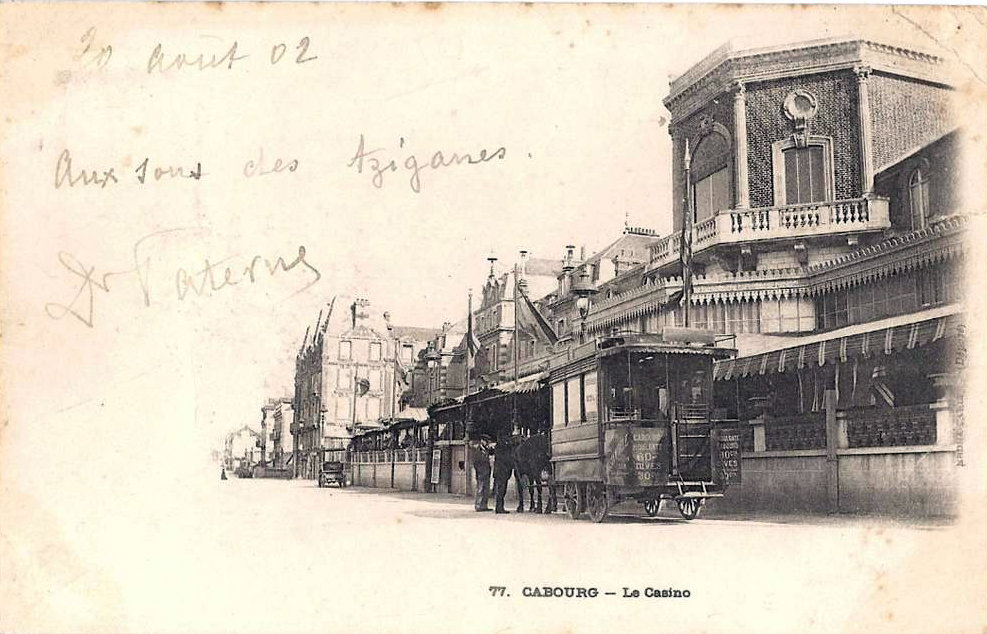 20 Août 02
Aux sons des tziganes.
Dr Paterne
CABOURG
60c
DIVES
30c
77. CABOURG — Le Casino